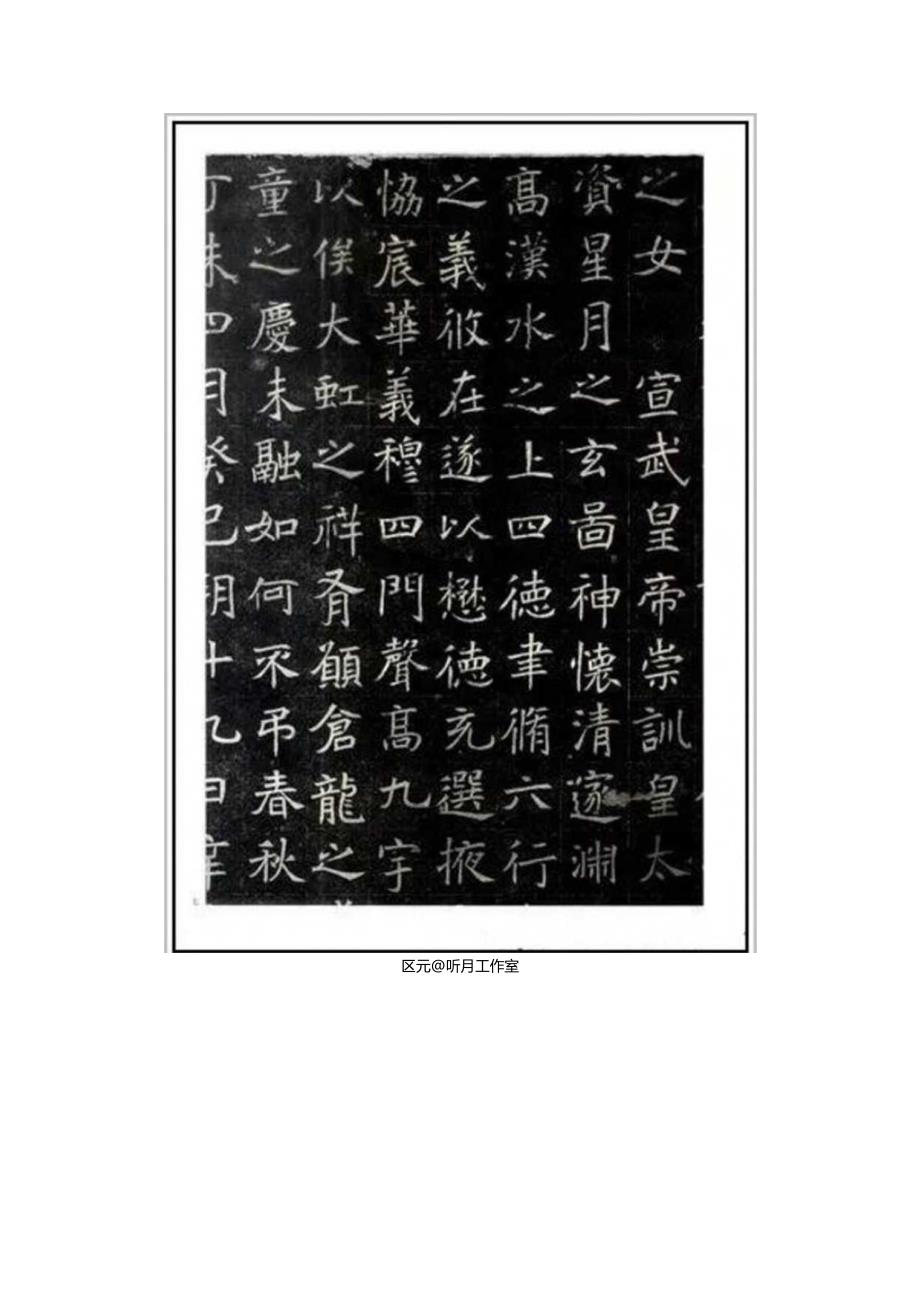 之女　宣武皇帝崇訓皇太
資星月之玄啚神懐清邃渊
髙漢水之上四徳聿脩六行
之義攸在遂以懋徳充選掖
恊宸華義穆四門聲髙九宇
以俟大虹之祥胥願倉龍之
童之慶未融如何不弔春秋
丁未四月癸巳朔十九日辛
区元@听月工作室